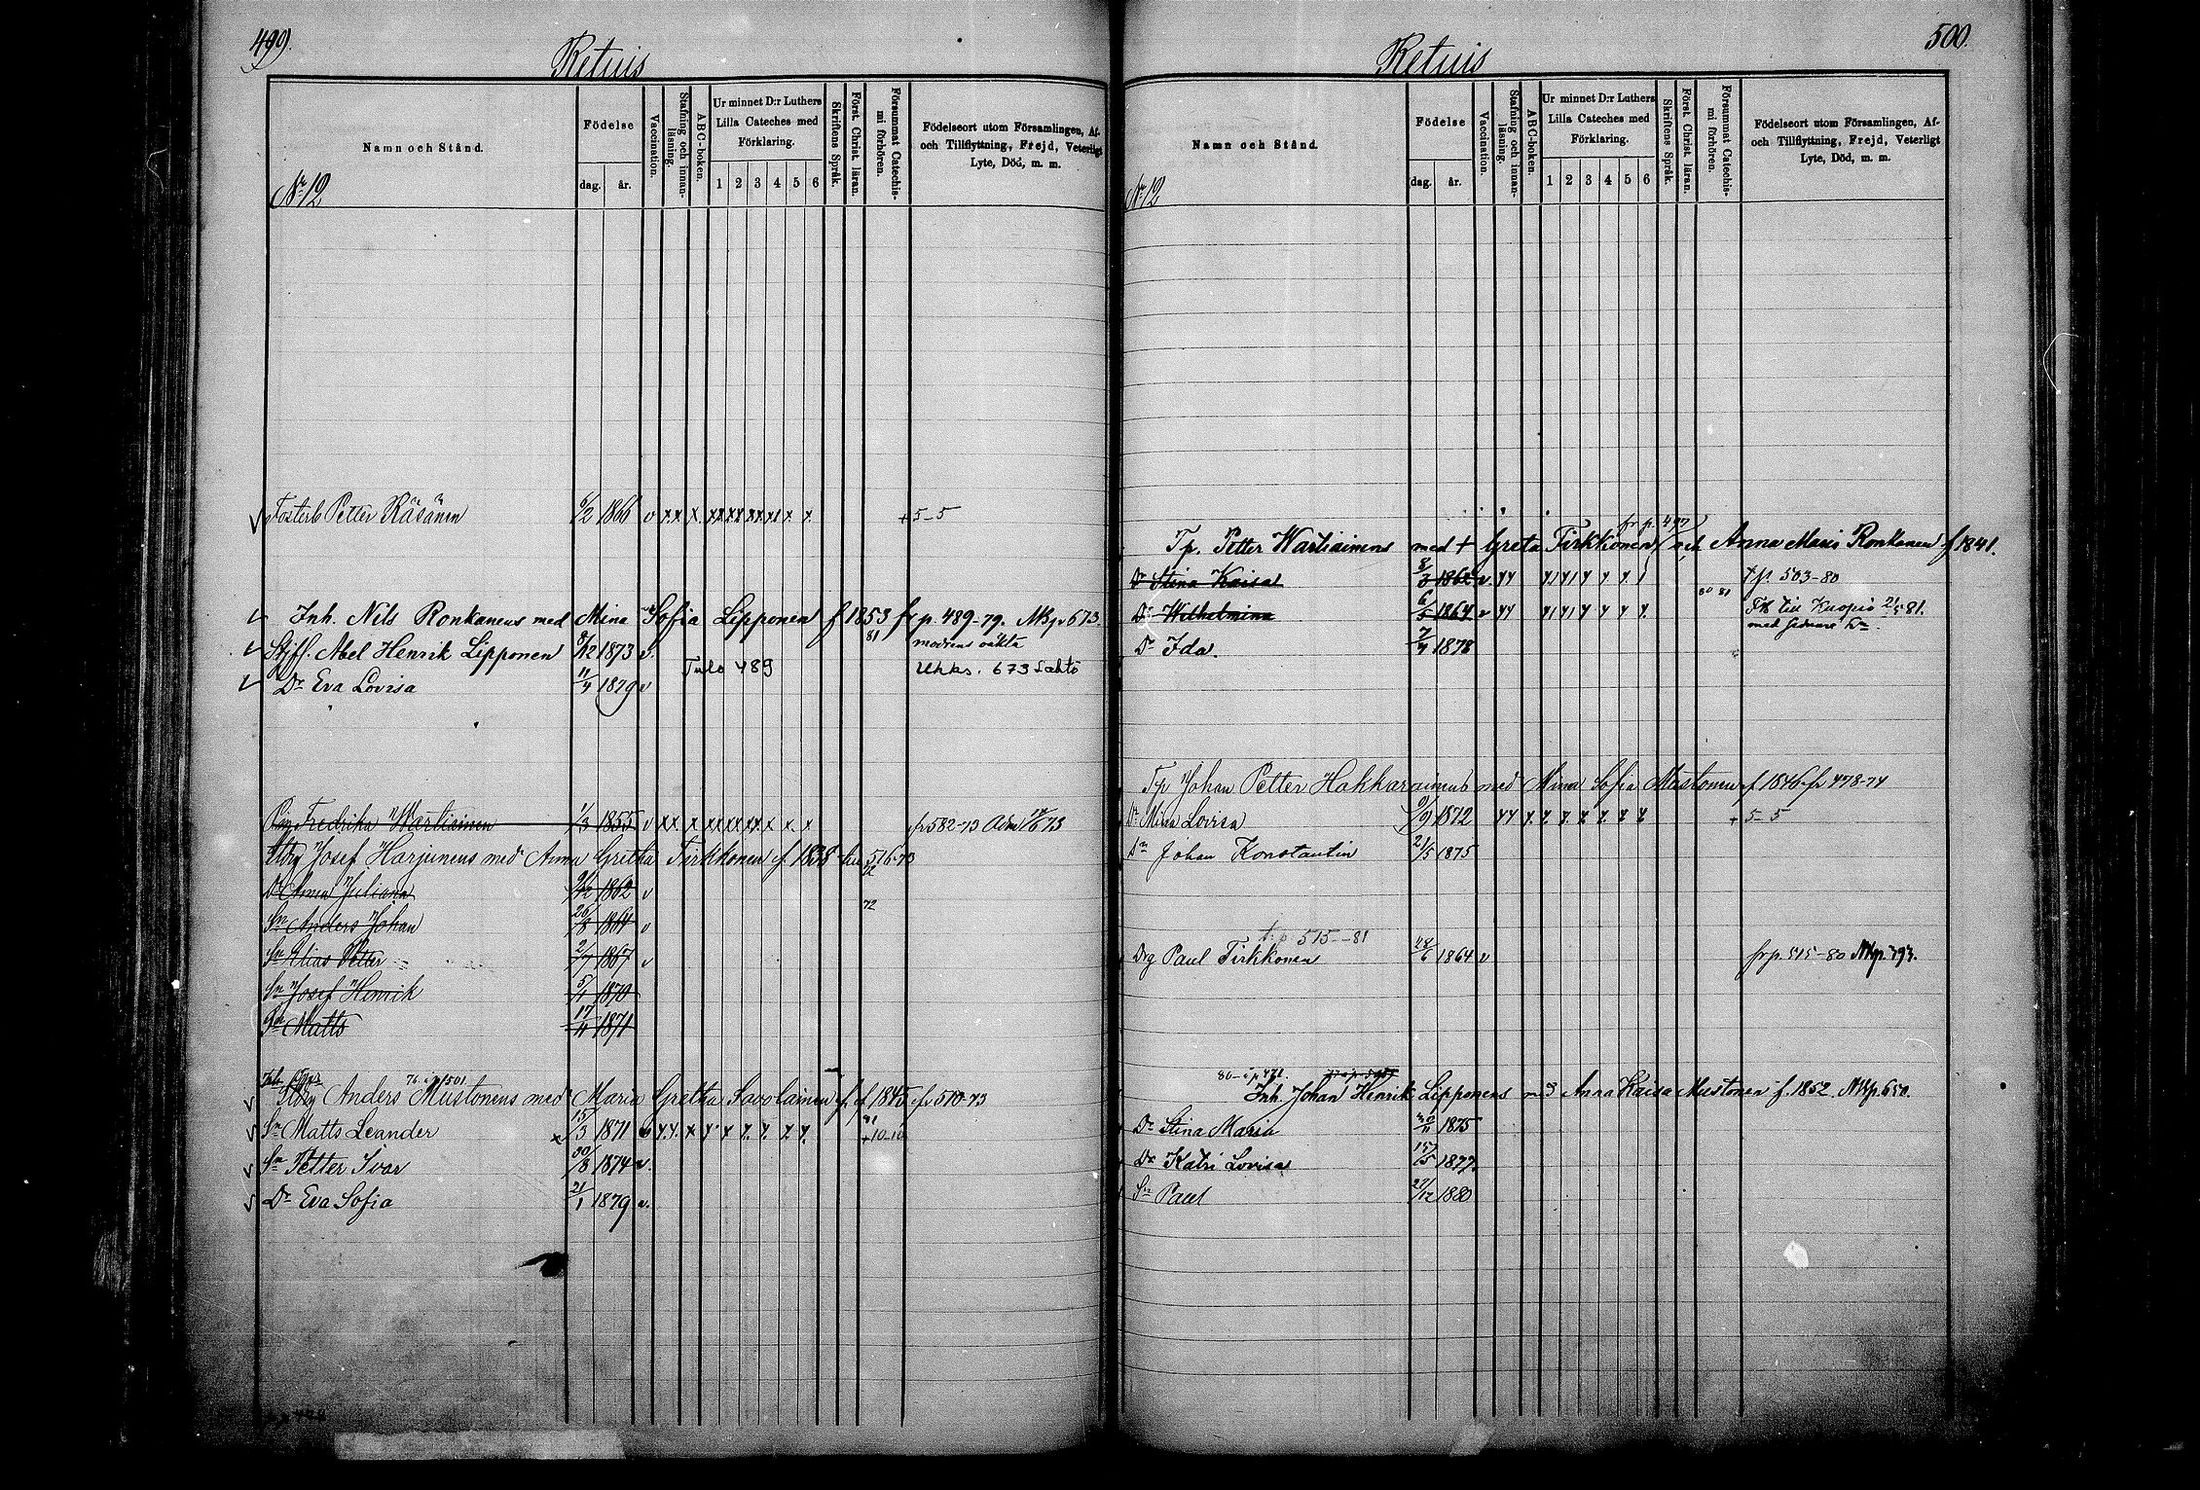 499.
Retuis
Namn och Stånd.
Födelse
dag. år.
Vaccination.
Stafning och innanläsning.
A B C-boken.
Ur minnet D:r Luthers Lilla Cateches med Förklaring.
1 2 3 4 5 6
Skriftens Språk.
Först. Christ. läran.
Försummat Catechismi förhören.
Födelseort utom Församlingen, Af- och Tillflyttning, Frejd, Veterligt Lyte, Död, m. m.
Nr 12
Petter Räsänen 6/2 1866 v x x x x x x x x x x + 5-5
Inh. Nils Ronkanens med Mina Sofia Lipponen f 1853 fr p. 489-79. Nkp 673.
Abel Henrik Lipponen 8/12 1873 v. 81 modrens oäkta
Tulo 489 Ukks. 673 Lähtö
Dr Eva Lovisa 11/4 1879 v
Fredrika Wartiainen 1/3 1855 v x x x x x x x x x fr 582-73
Josef Harjunens med Anna Gretha Tirkkonen f. 1838 516-73
Dr Anna Juliana 1862 v
72
Sn Anders Johan 26/8 1864 v
Sn Elias Petter 2/7 1867 v
Sn Josef Henrik 5/1 1870
Sn Matts 17/11 1871
76 i p 501
Anders Mustonens med Maria Gretha Savolainen f. 1845 fr 510-73
Sn Matts Leander 15/3 1871 x x x x x x x x x 81 + 10-10
Sn Petter Ivar 30/8 1874 v.
Dr Eva Sofia 21/1 1879 v.
500.
Retuis
Namn och Stånd.
Födelse
dag. år.
Vaccination.
Stafning och innanläsning.
A B C-boken.
Ur minnet D:r Luthers Lilla Cateches med Förklaring.
1 2 3 4 5 6
Skriftens Språk.
Först. Christ. läran.
Försummat Catechismi förhören.
Födelseort utom Församlingen, Af- och Tillflyttning, Frejd, Veterligt Lyte, Död, m. m.
Nr 12
fr p. 497
Tp. Petter Wartiainens med + Greta Tirkkonen och Anna Maria Ronkanen f 1841.
Dr Stina Kaisa 8/3 1862 v. x x x x x x x x t p. 503-80
80 81
Dr Wilhelmina 6/5 1864 v x x x x x x x x till Kuopio 21/5 81.
Dr Ida. 7/4 1878
Tp Johan Petter Hakkarainens med Mina Sofia Mustonen f 1846 fr 478-74
Dr Mina Lovisa 9/9 1872 x x x x x x x x x + 5-5
Sn Johan Konstantin 21/5 1875
t. p 515-81
Drg Paul Tirkkonen 28/6 1864 v fr p. 515-80 Nkp. 393.
80-i p 471.
Inh. Johan Henrik Lipponens med Anna Kaisa Mustonen f. 1852. Nkp. 650.
Dr Stina Maria 30/11 1875
Dr Katri Lovisa 15/5 1877.
Sn Paul 27/12 1880